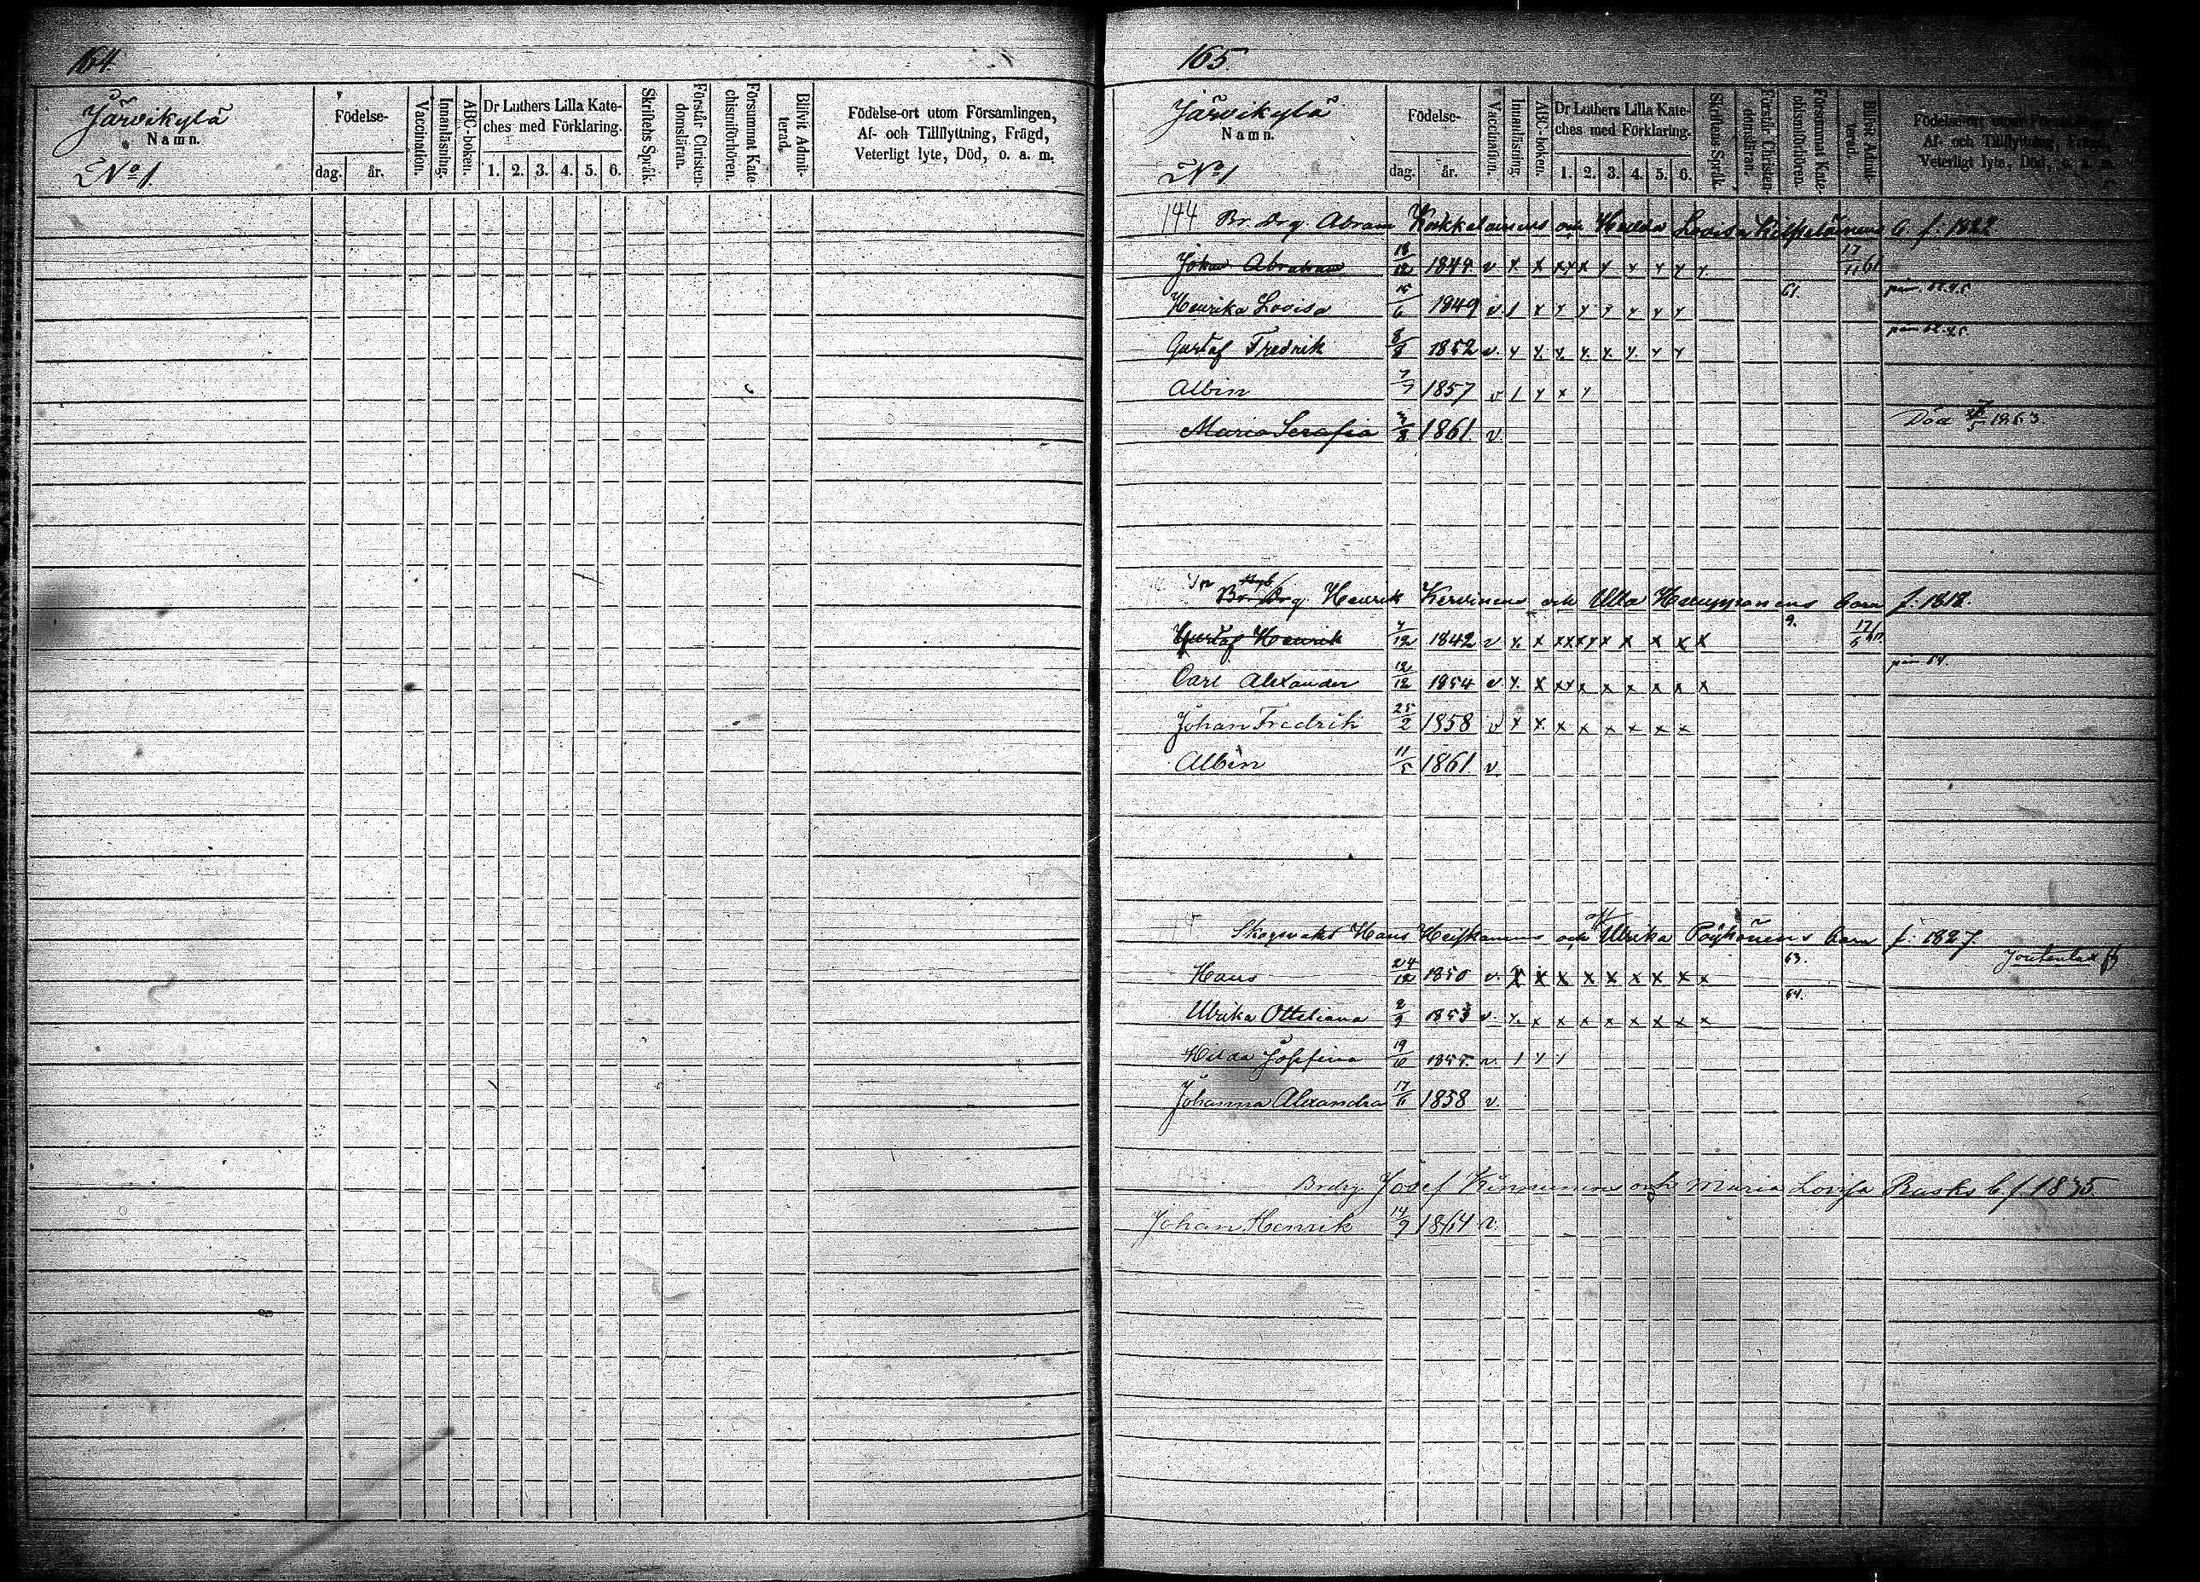 164.
Järvikylä
Namn.
No 1
Födelse-
dag. år.
Vaccination.
Innanläsning.
ABC-boken.
Dr Luthers Lilla Kate-
ches med Förklaring.
1. 2. 3. 4. 5. 6.
Skriftens Språk.
Förstår Christen-
domsläran.
Försummat Kate-
chismiförhören.
Blifvit Admit-
terad.
Födelse-ort utom Församlingen,
Af- och Tillflyttning, Frägd,
Veterligt lyte, Död, o. a. m.
165.
Järvikylä
Namn.
No 1
Födelse-
dag. år.
Vaccination.
Innanläsning.
ABC-boken.
Dr Luthers Lilla Kate-
ches med Förklaring.
1. 2. 3. 4. 5. 6.
Skriftens Språk.
Förstår Christen-
domsläran.
Försummat Kate-
chismiförhören.
Blifvit Admit-
terad.
Födelse-ort utom Församlingen,
Af- och Tillflyttning, Frägd,
Veterligt lyte, Död, o. a. m.
144 Br. Drg. Abram och Hedda Lovisa b. f. 1822
Johan Abraham 18/12 1844 v x x x x x y y y y y 17/11 61
Henrika Lovisa 15/6 1849 v 1 x y y y y y y 61.
Gustaf Fredrik 8/8 1852 v. y y y y y y y y
Albin 7/7 1857 v 1 y x y
Maria Serafia 3/8 1861. v. Död 1863
Br. Drg. Henrik och Ulla barn f. 1818.
Gustaf Henrik 7/12 1842 v x x x x x y x x x x x 9.
Carl Alexander 12/12 1854 v y. x x y x x x x x x
Johan Fredrik 25/2 1858 v x x x x x x x x
Albin 11/5 1861. v
Skogvakt Hans Heiskanens och Ulrika Pöyhönens barn f. 1827.
Hans 24/12 1850 v. x x x x x x x x x 63.
Ulrika Ottiliana 2/9 1853 v. x x x x x x x x x 64.
Hilda Josefina 19/10 1855. v. 1 y 1
Johanna Alexandra 17/6 1858 v.
Brdrg. Josef Kinnunens och Maria Lovisa Rusks b f 1835.
Johan Henrik 14/9 1864 v.